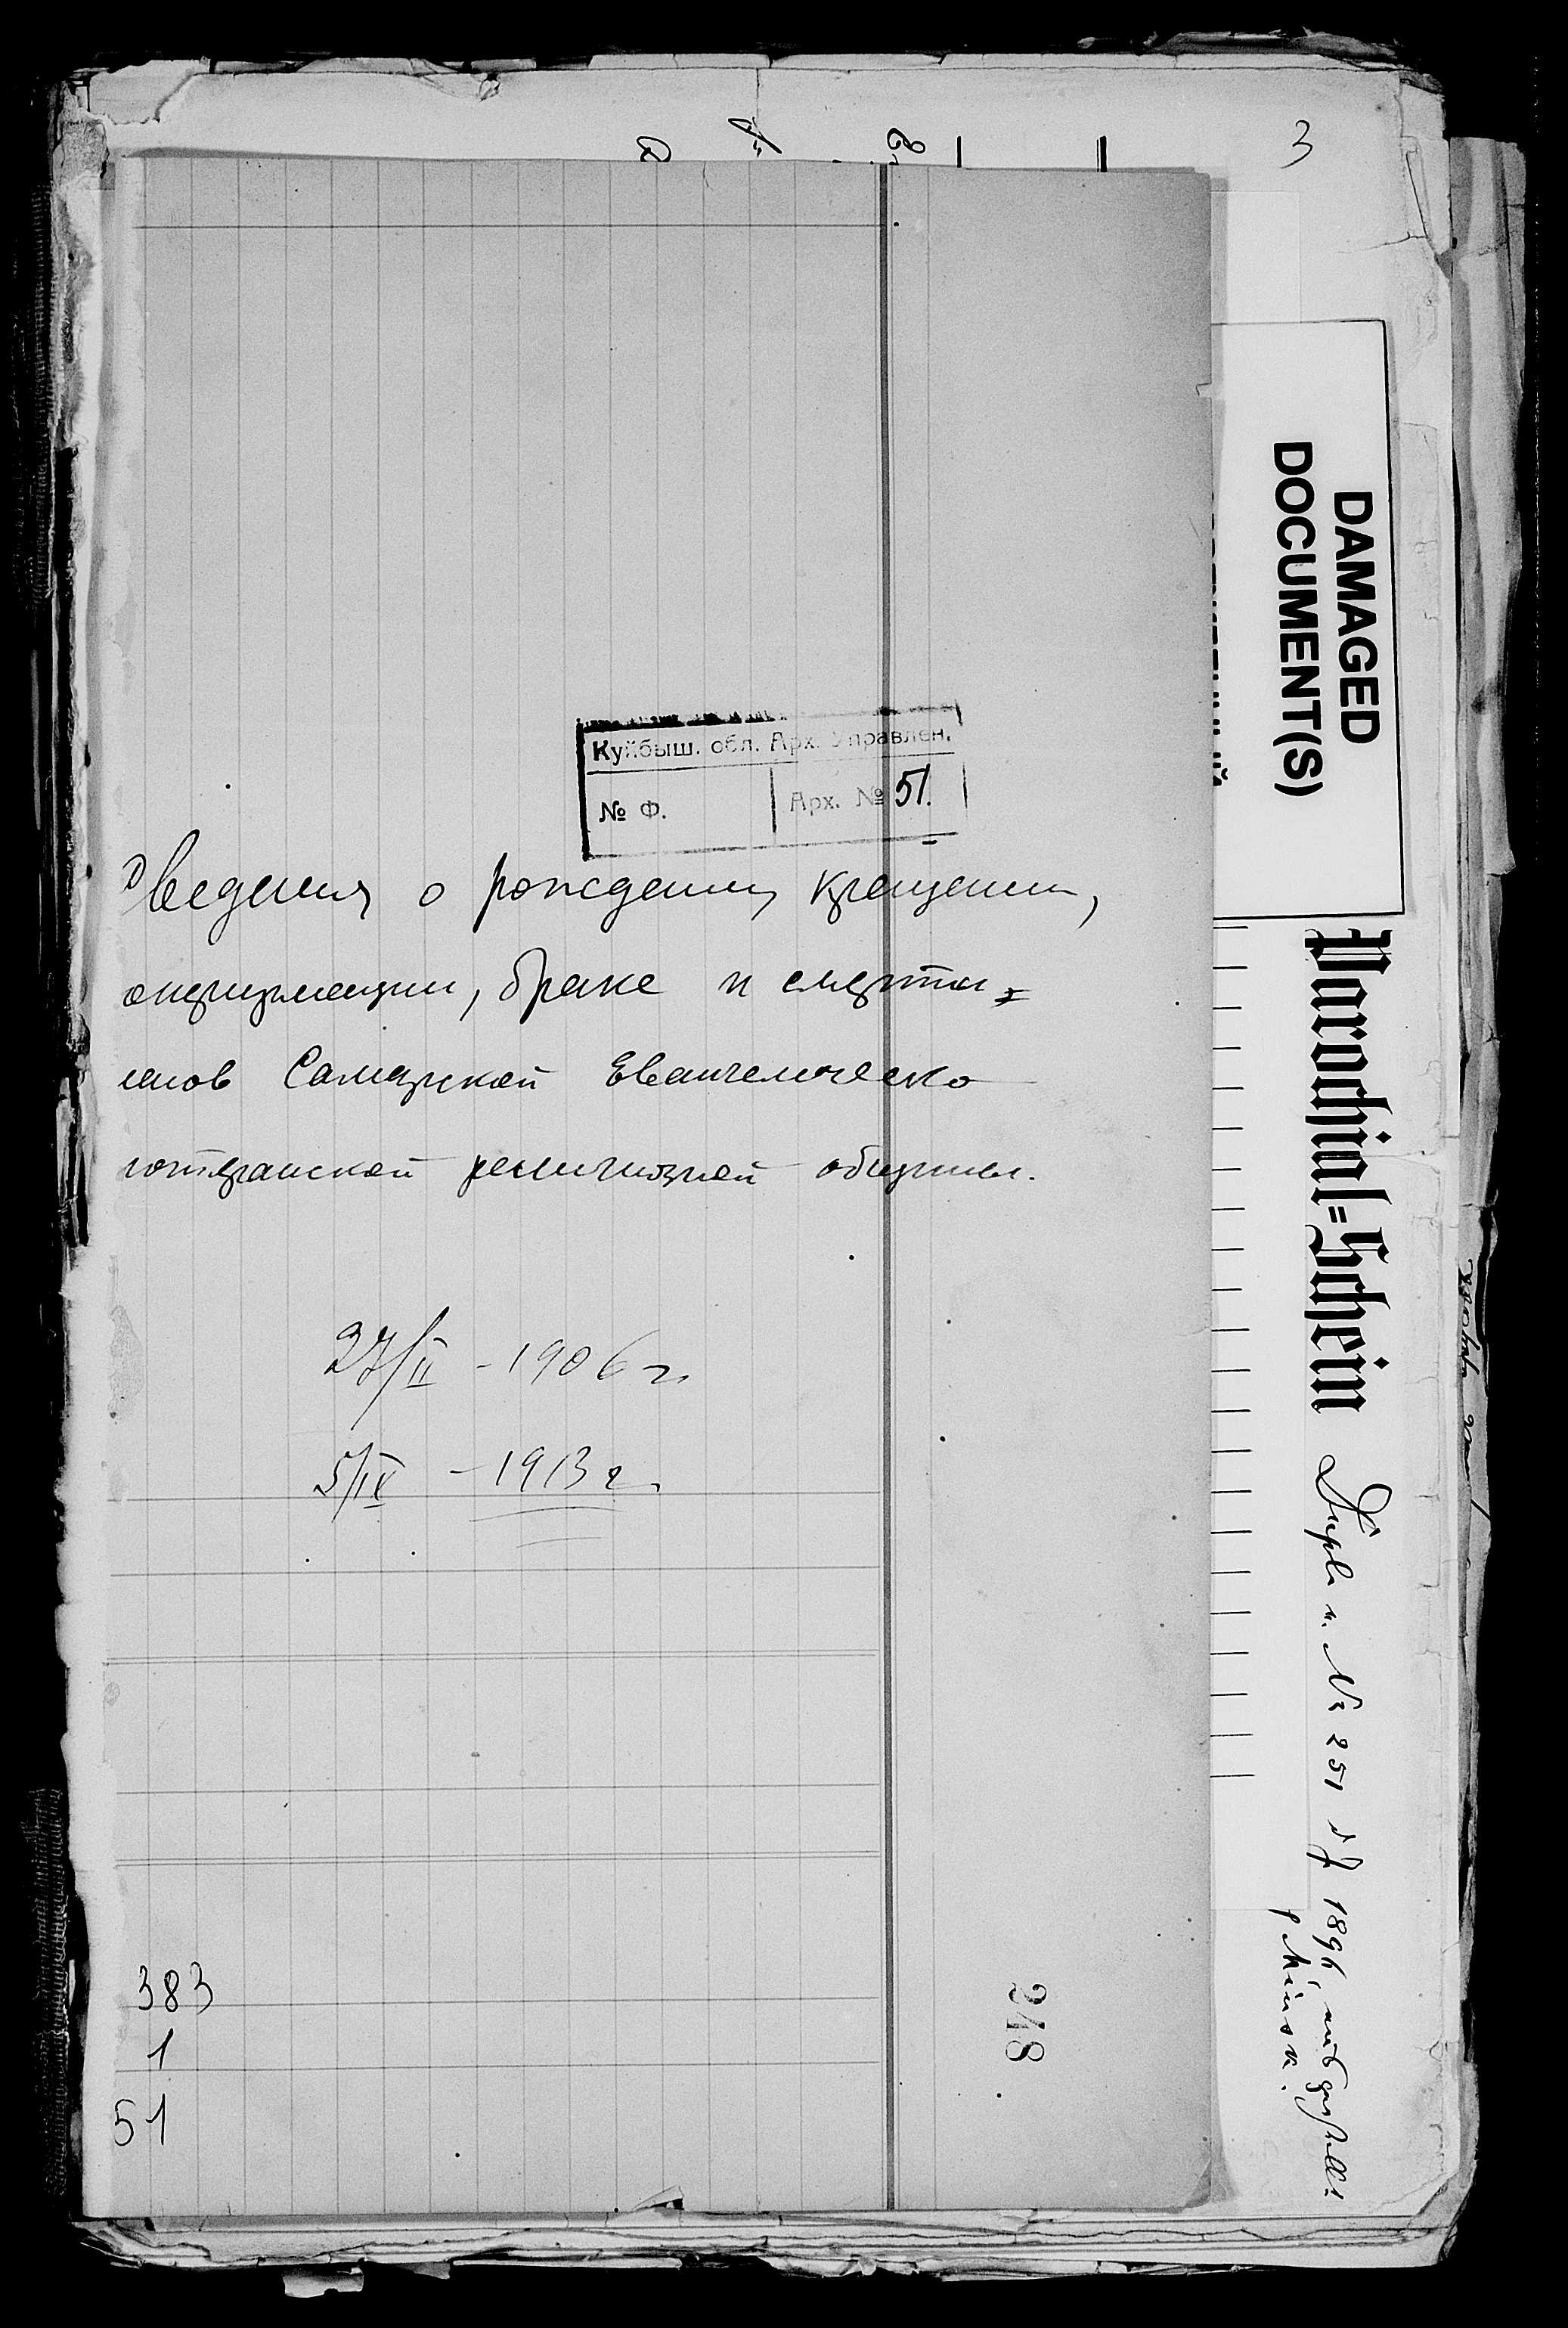 3
Куйбыш. обл. Арх. Управлен.
№ Ф. Арх. № 51.
Сведения о рождении, крещении,
онфирмации, браке и смерти
ленов Самарской Евангелическо
лютеранской религиозной общины.
27/II - 1906 г.
5/IX - 1913 г.
383
1
51
248
DAMAGED
DOCUMENT(S)
Parochial=Schein Dupl. v. № 251 1896 ausgestellt
Minsk.